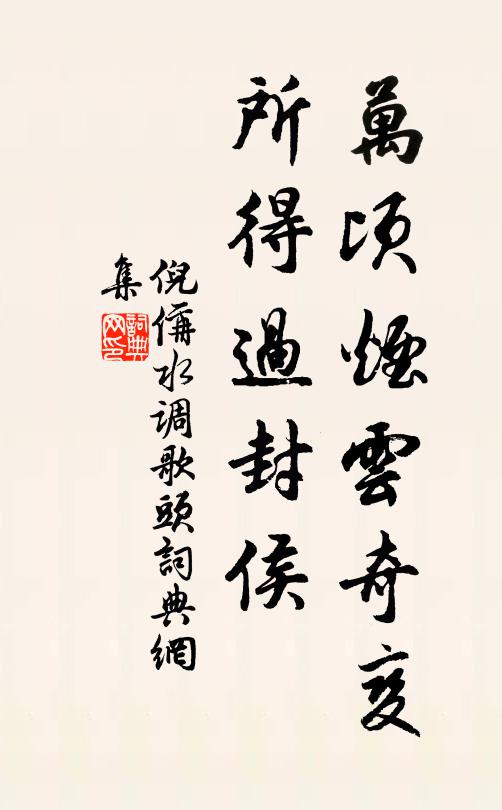 萬頃煙雲奇变
所得過封侯
倪偁水调歌頭詞典網
集
詞典网印